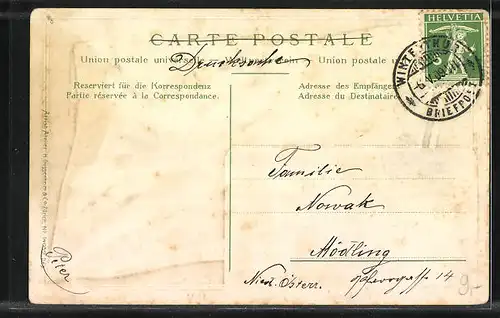 CARTE POSTALE
Union postale universelle Drucksache Union postale
Reserviert für die Korrespondenz
Partie réservée à la Correspondance.
Adresse des Empfängers
Adresse du Destinataire
HELVETIA
5
WINTERTHUR
BRIEFP
Familie
Nowak
Mödling
Nied. Österr. 14
Peter
9.-